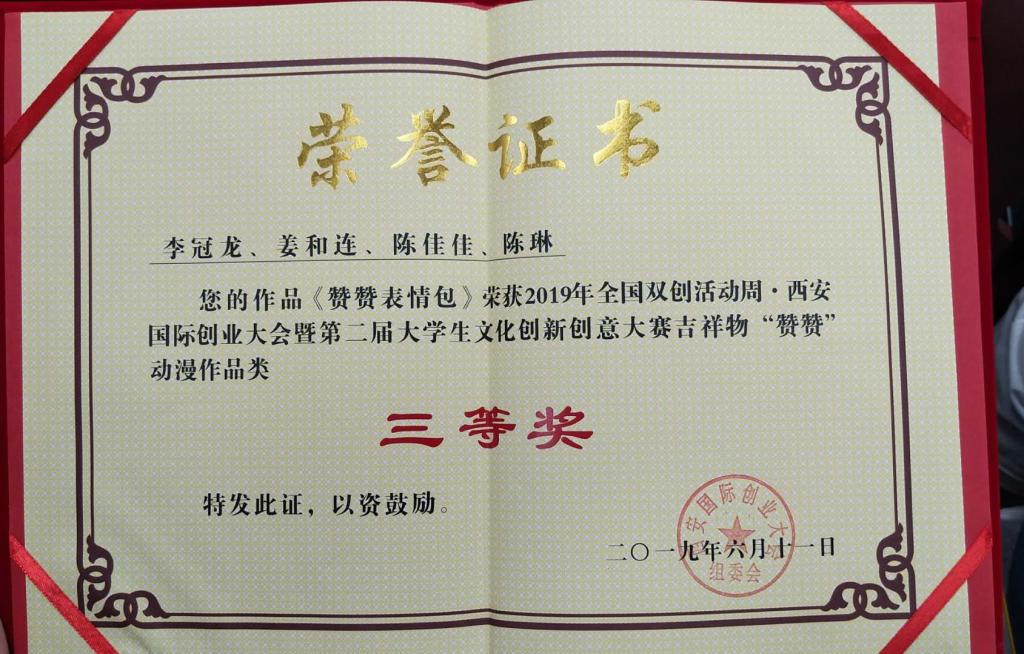 荣誉证书
李冠龙、姜和连、陈佳佳、陈琳
您的作品《赞赞表情包》荣获2019年全国双创活动周·西安
国际创业大会暨第二届大学生文化创新创意大赛吉祥物“赞赞”
动漫作品类
三等奖
特发此证，以资鼓励。
西安国际创业大会
二〇一九年六月十一日
组委会